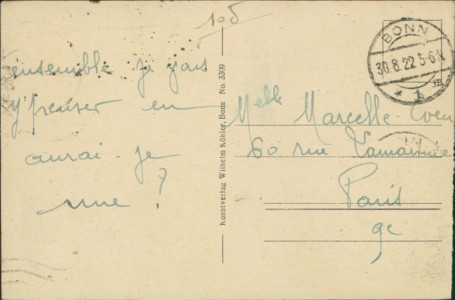 105
BONN
30.8.22 5-6 N
* b
ensemble je vais
y penser en
aurai-je
une ?
Kunstverlag Wilhelm Köhler, Bonn No. 3309
Melle Marcelle
60 rue
Paris
9e